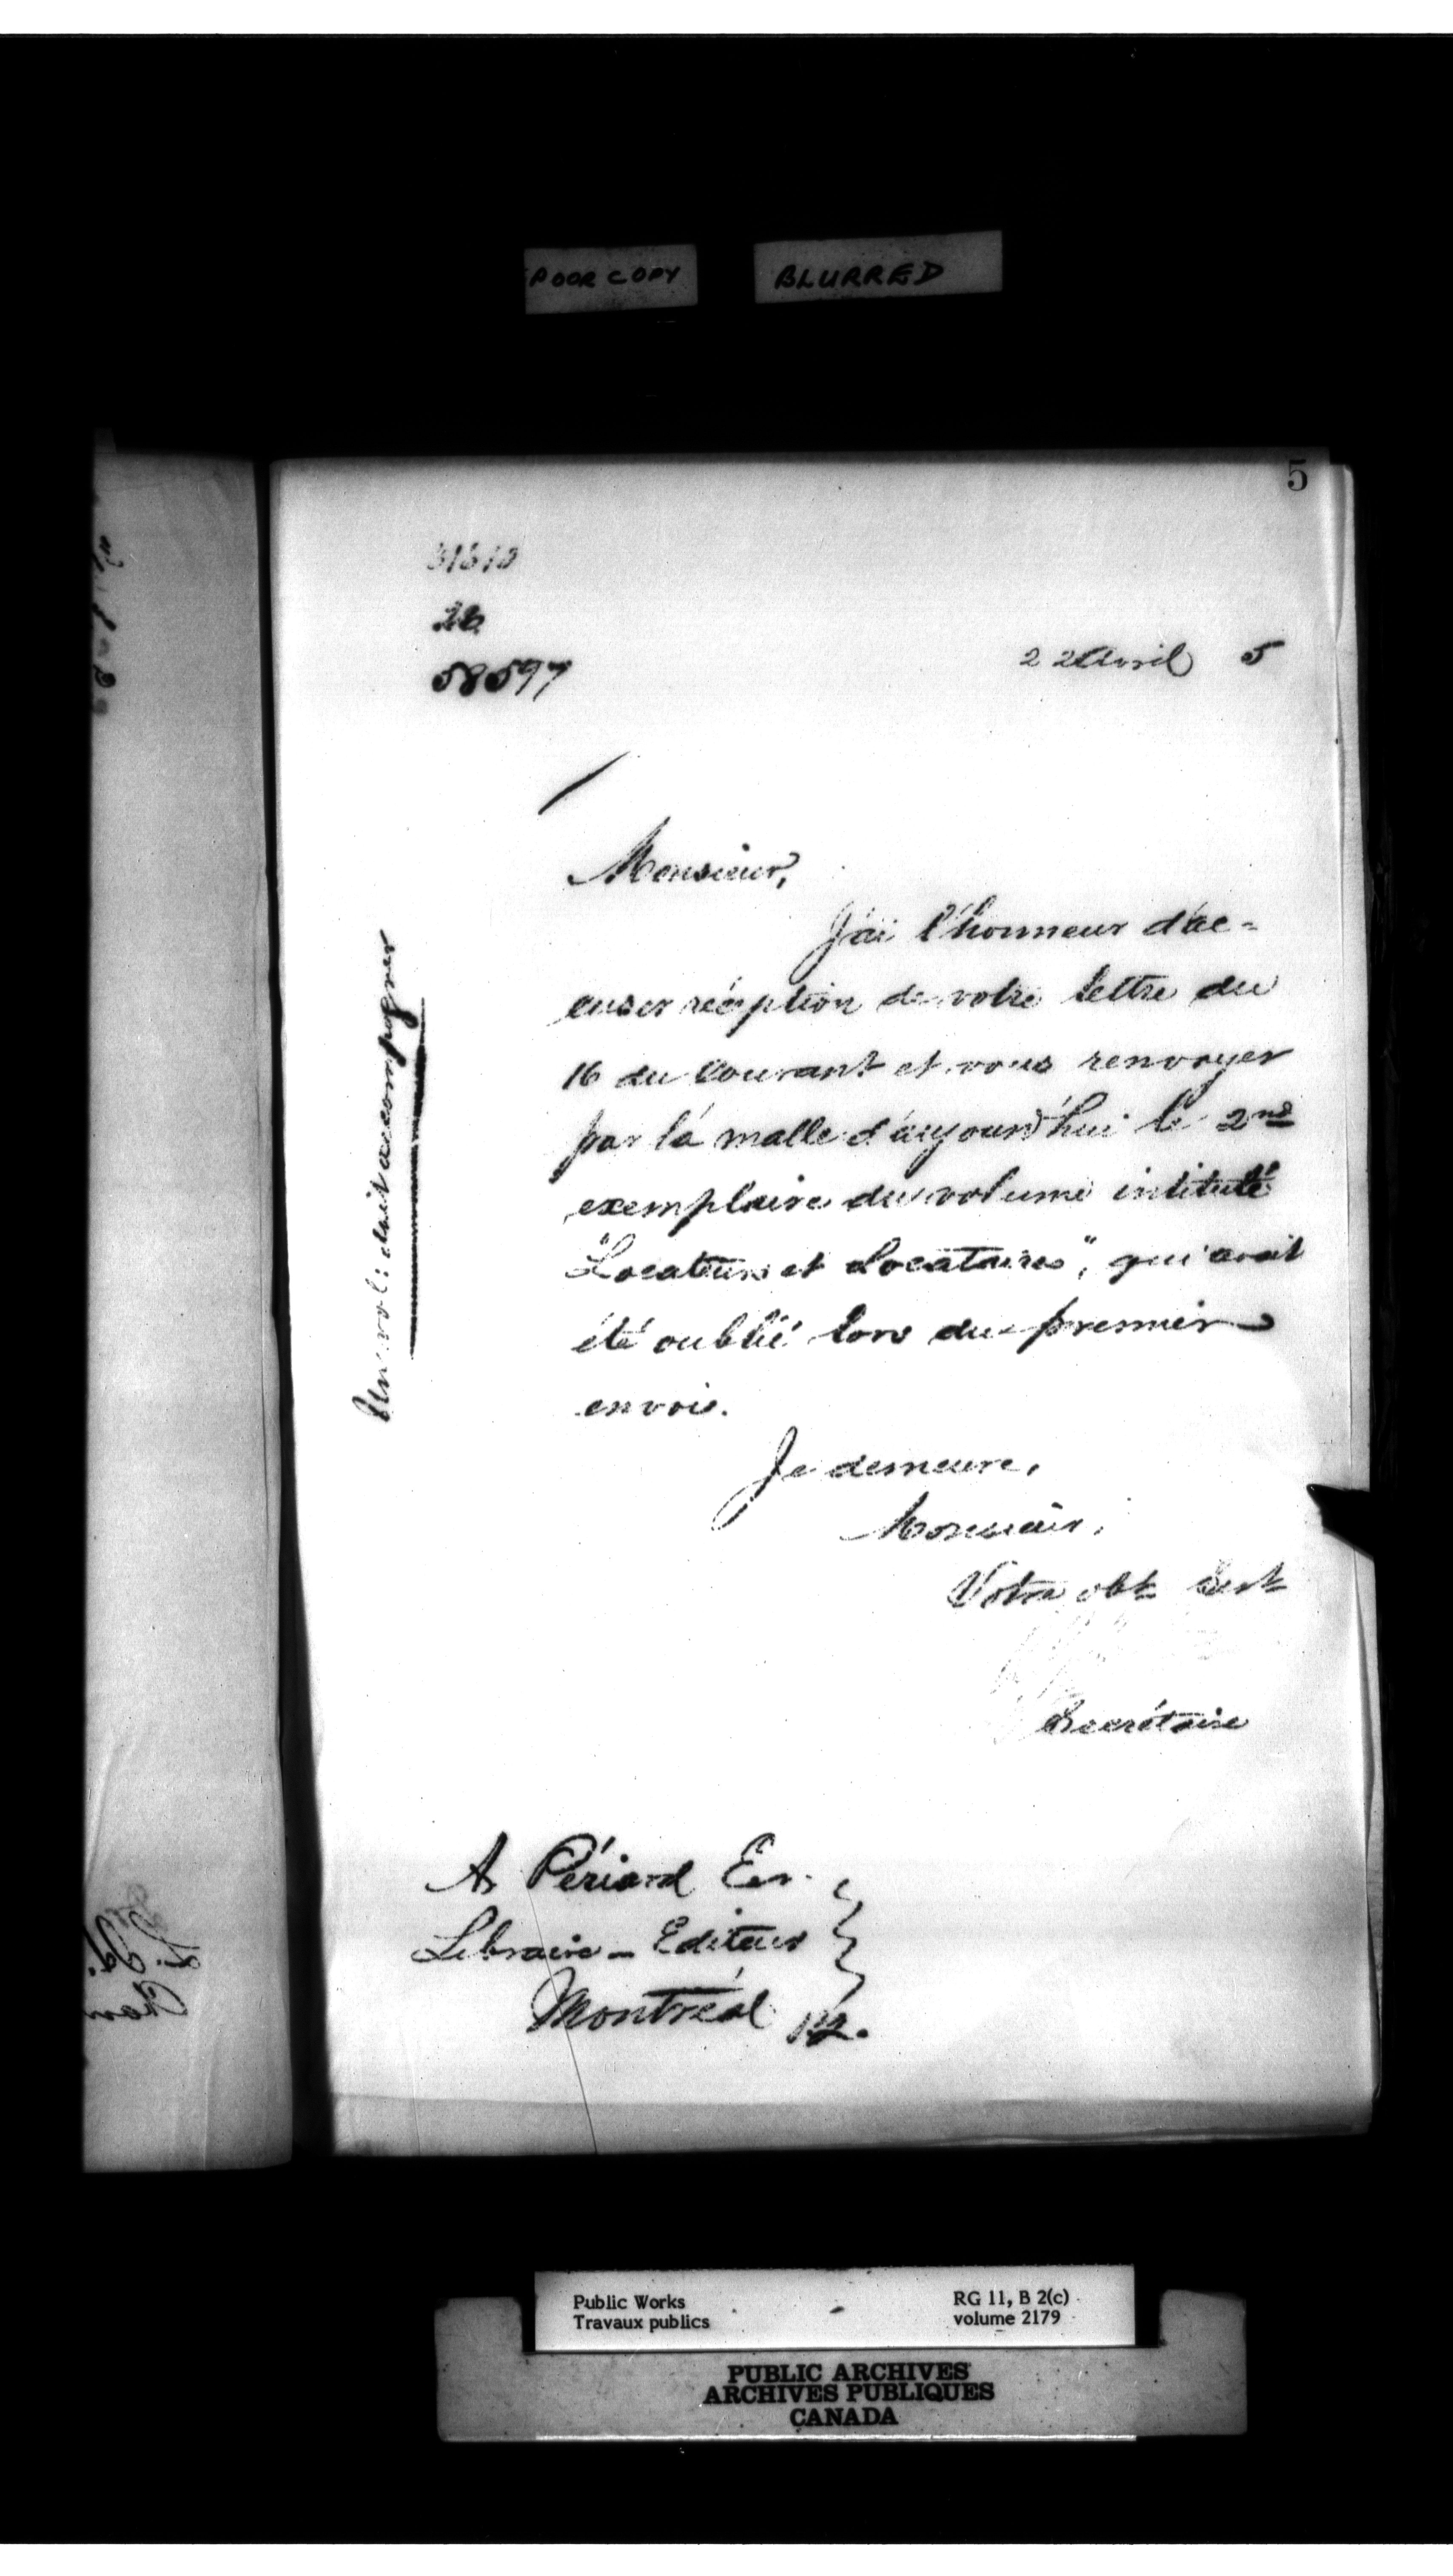 POOR COPY
BLURRED
5
26
58597
22 Avril 5
Monsieur,
J'ai l'honneur d'ac=
cuser réception de votre lettre du
16 du courant et vous renvoyer
par la malle d'aujourd'hui le 2nd
exemplaire du volume intitulé
"Locateurs et Locataires", qui avait
été oublié lors du premier
envoi.
Je demeure,
Monsieur,
Votre obt Sert
Secrétaire
Un vol: doit accompagner
A Périard Ecr.
Libraire - Editeur
Montréal
Public Works
Travaux publics
RG 11, B 2(c)
volume 2179
PUBLIC ARCHIVES
ARCHIVES PUBLIQUES
CANADA